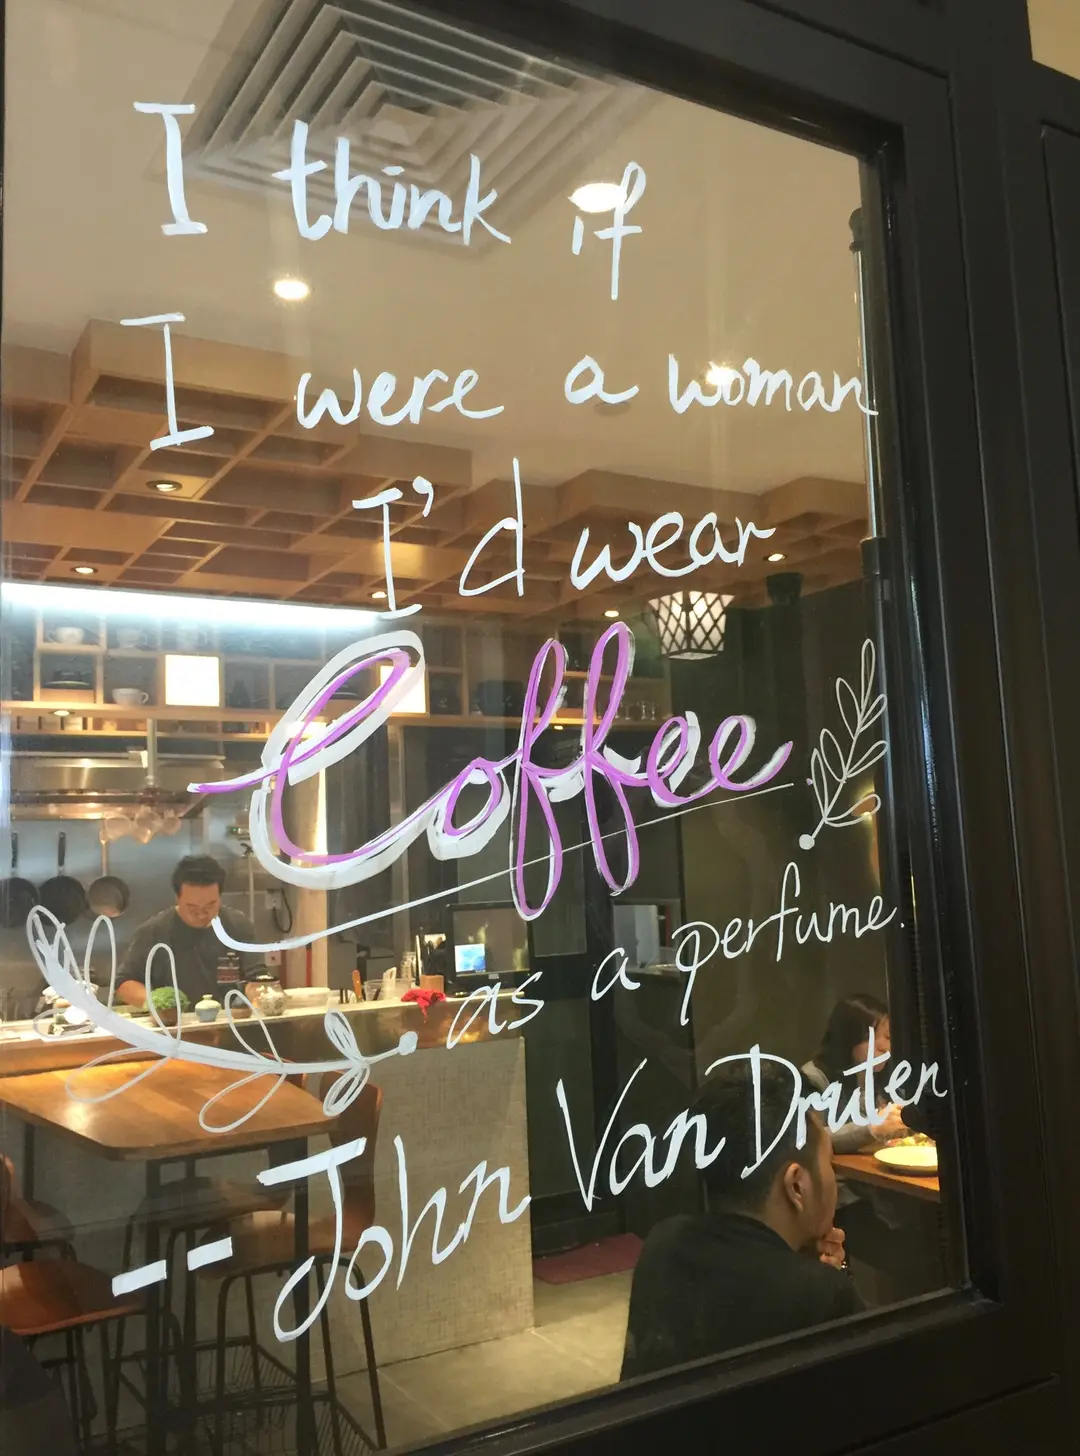 I think if
I were a woman
I'd wear
Coffee
as a perfume.
--John Van Druten